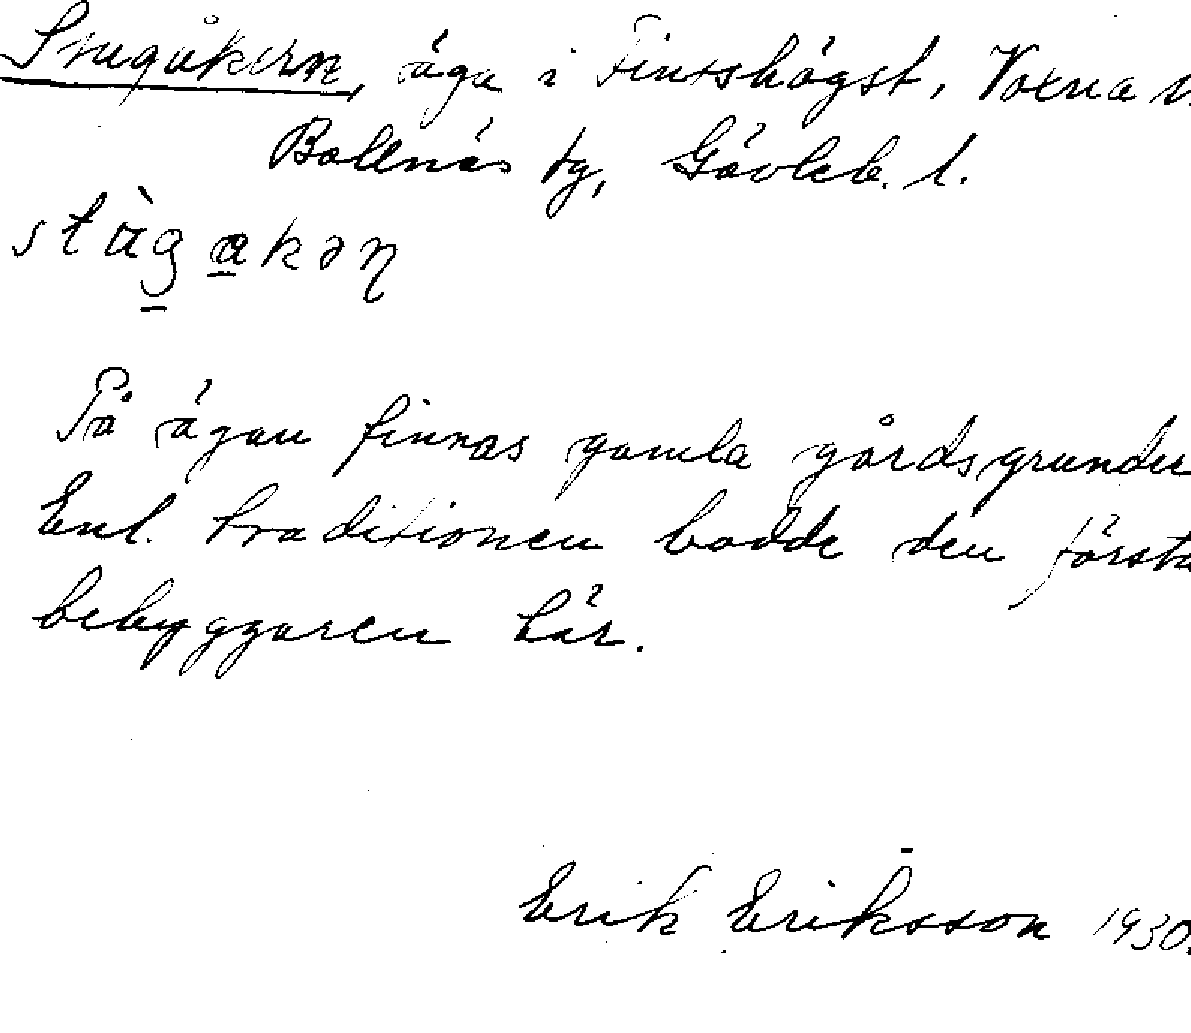 Stugåkern, äga i Fintshögst, Voxna
Bollnäs tg, Gävleb. l.
På ägan finnas gamla gårdsgrunder
Enl. traditionen bodde den första
bebyggaren här.
Erik Eriksson 1930.